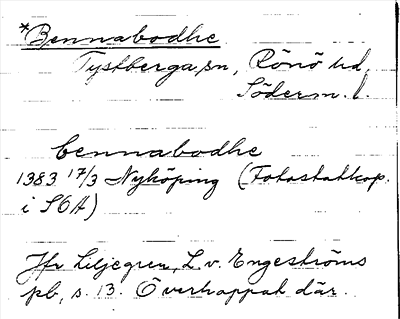 *Bennabodhe
Tystberga sn, Rönö hd,
Söderm. l.
bennabodhe
1383 17/3 Nyköping (Fotostatkop.
i SOA)
Jfr Liljegren, L. v. Engeströms
pb, s. 13. Överhoppat där.